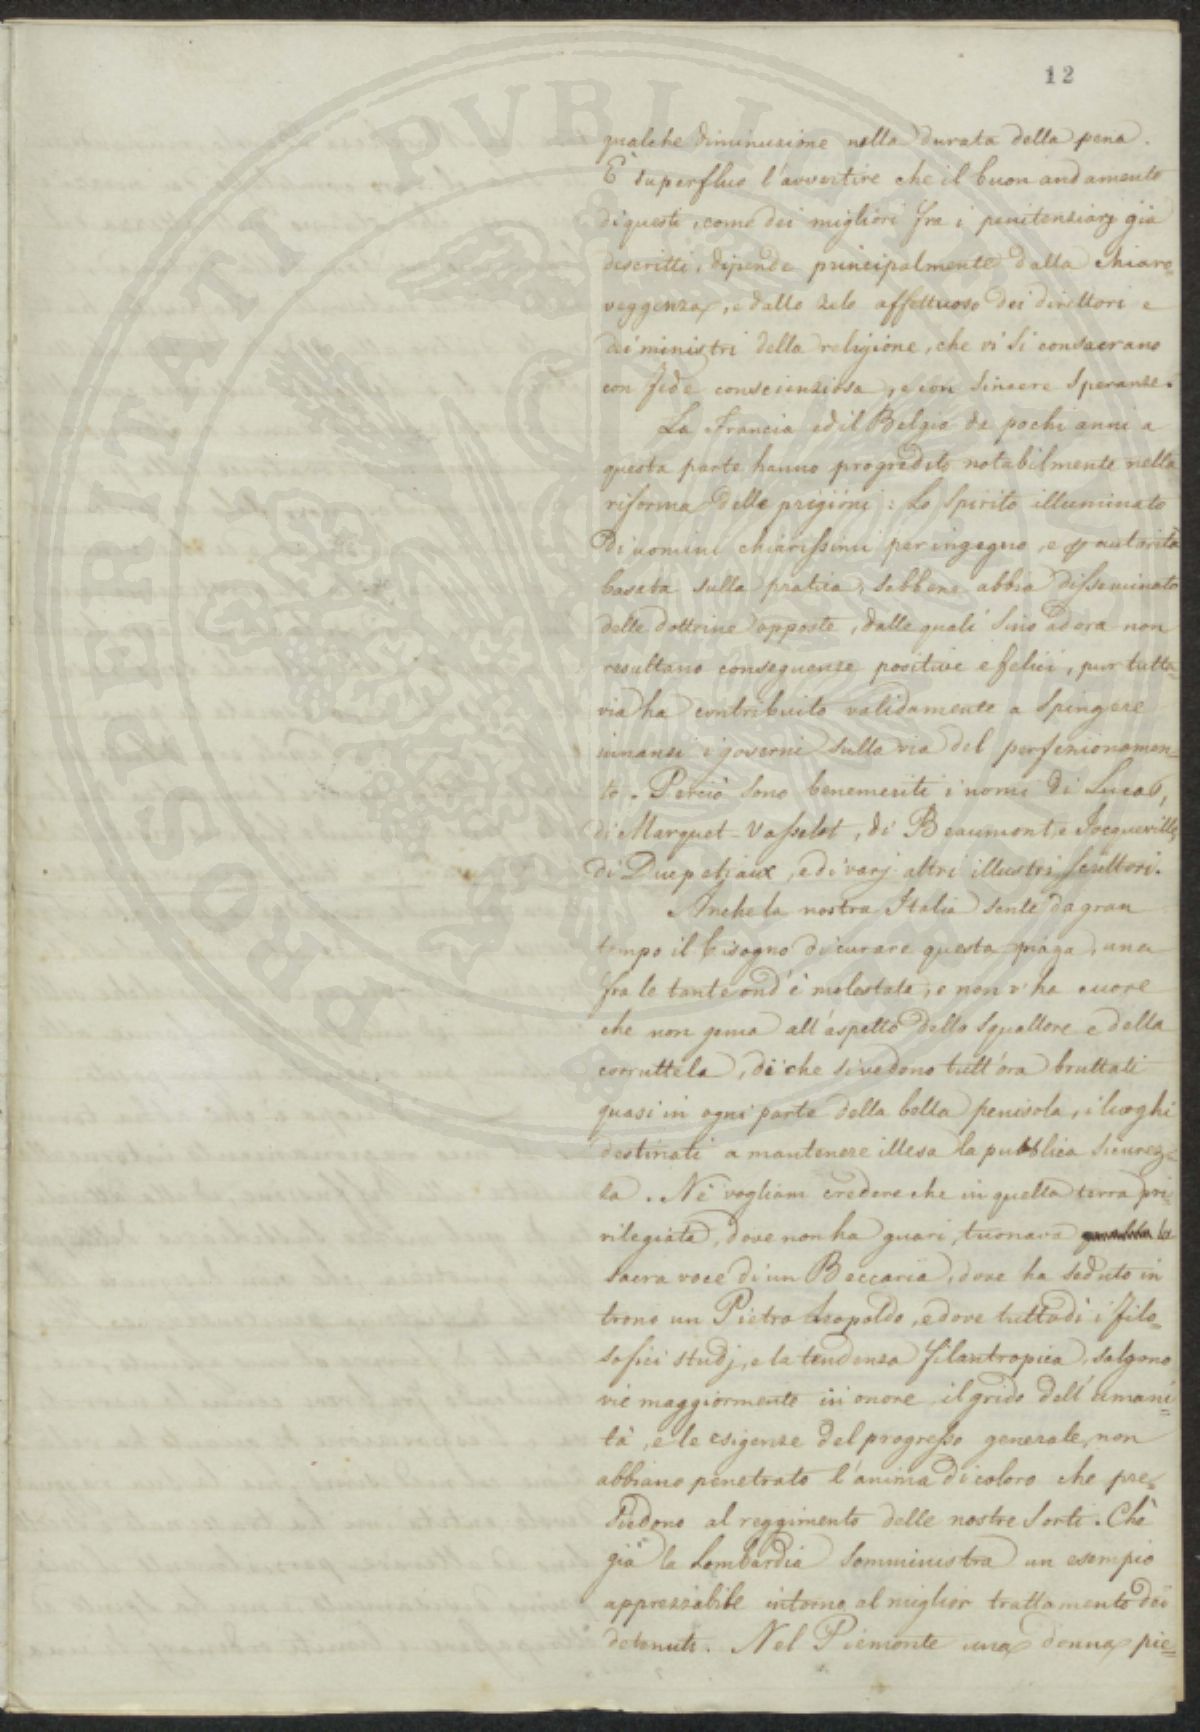 12
qualche diminuzione nella durata della pena.
È superfluo l'avvertire che il buon andamento
di questi, come dei migliori fra i penitenziarj già
descritti, dipende principalmente dalla chiaro=
veggenza, e dallo zelo affettuoso dei direttori e
dei ministri della religione, che vi si consacrano
con fede conscienziosa, e con sincere speranze.
La Francia ed il Belgio da pochi anni a
questa parte hanno progredito notabilmente nella
riforma delle prigioni: Lo spirito illuminato
di uomini chiarissimi per ingegno, e autorità
basata sulla pratica, sebbene abbia disseminato
delle dottrine opposte, dalle quali sino ad ora non
resultano conseguenze positive e felici, pur tutta=
via ha contribuito validamente a spingere
innanzi i governi sulla via del perfezionamen=
to. Perciò sono benemeriti i nomi di Lucas,
di Marquet-Vasselot, di Beaumont, e Tocqueville,
di Ducpetiaux, e di varj altri illustri scrittori.
Anche la nostra Italia sente da gran
tempo il bisogno di curare questa piaga, una
fra le tante ond'è molestata, e non v'ha cuore
che non gema all'aspetto dello squallore e della
corruttela, di che si vedono tutt'ora bruttati
quasi in ogni parte della bella penisola, i luoghi
destinati a mantenere illesa la pubblica sicurez=
za. Nè vogliam credere che in quella terra pri=
vilegiata, dove non ha guari, tuonava la
sacra voce di un Beccaria, dove ha seduto in
trono un Pietro Leopoldo, e dove tuttodì i filo=
sofici studj, e la tendenza filantropica, salgono
vie maggiormente in onore il grido dell'umani=
tà, e le esigenze del progresso generale, non
abbiano penetrato l'anima di coloro che pre=
siedono al reggimento delle nostre sorti. Chè
già la Lombardia somministra un esempio
apprezzabile intorno al miglior trattamento dei
detenuti. Nel Piemonte una donna pie=
PROSPERITATI PVBLICAE